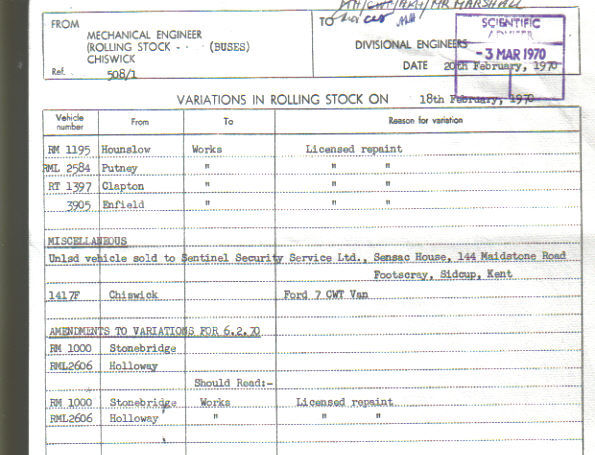 FROM
MECHANICAL ENGINEER
(ROLLING STOCK - (BUSES)
CHISWICK
Ref. 508/1
TO
MR MARSHALL
DIVISIONAL ENGINEERS
SCIENTIFIC
ADVISER
-3 MAR 1970
DATE 20th February, 1970
VARIATIONS IN ROLLING STOCK ON 18th February, 1970
Vehicle number From To Reason for variation
RM 1195 Hounslow Works Licensed repaint
RML 2584 Putney " " "
RT 1397 Clapton " " "
3905 Enfield " " "
MISCELLANEOUS
Unlsd vehicle sold to Sentinel Security Service Ltd., Sensac House, 144 Maidstone Road
Footscray, Sidcup, Kent
1417F Chiswick Ford 7 CWT Van
AMENDMENTS TO VARIATIONS FOR 6.2.70
RM 1000 Stonebridge
RML2606 Holloway
Should Read:-
RM 1000 Stonebridge Works Licensed repaint
RML2606 Holloway " " "